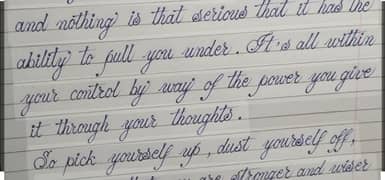 and nothing is that serious that it has the
ability to pull you under. It's all within
your control by way of the power you give
it through your thoughts.
So pick yourself up, dust yourself off,
are stronger and wiser